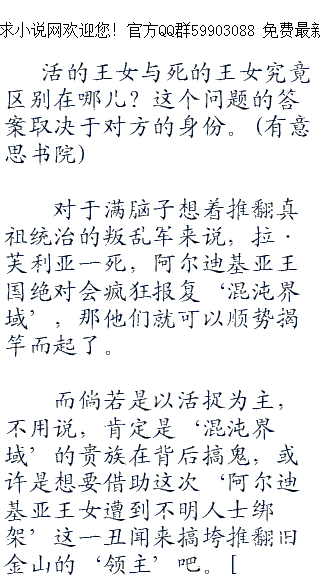 求小说网欢迎您！官方QQ群59903088 免费最新
活的王女与死的王女究竟
区别在哪儿？这个问题的答
案取决于对方的身份。(有意
思书院)
对于满脑子想着推翻真
祖统治的叛乱军来说，拉·
芙利亚一死，阿尔迪基亚王
国绝对会疯狂报复‘混沌界
域’，那他们就可以顺势揭
竿而起了。
而倘若是以活捉为主，
不用说，肯定是‘混沌界
域’的贵族在背后搞鬼，或
许是想要借助这次‘阿尔迪
基亚王女遭到不明人士绑
架’这一丑闻来搞垮推翻旧
金山的‘领主’吧。[